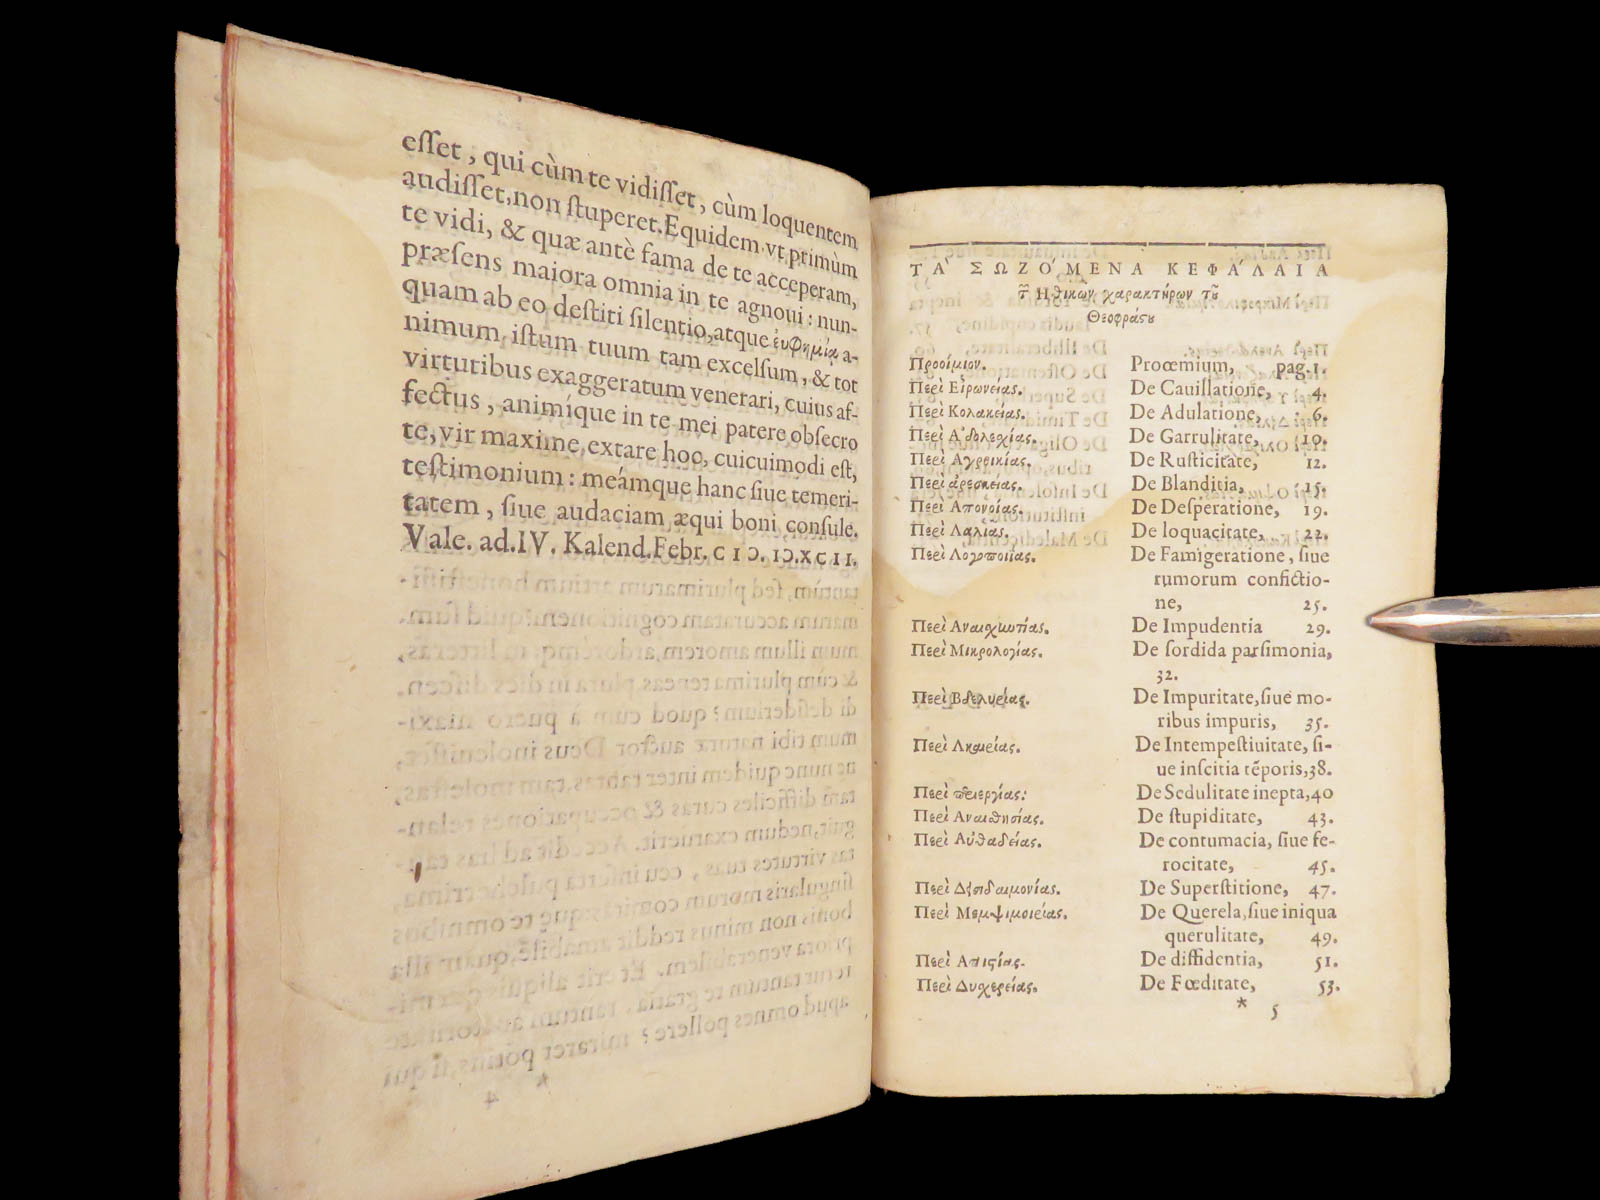 esſet, qui cùm te vidiſſet, cùm loquentem
audiſſet, non ſtuperet. Equidem vt primùm
te vidi, & quæ antè fama de te acceperam,
præſens maiora omnia in te agnoui: nun-
quam ab eo deſtiti ſilentio, atque ἐυφημίᾳ a-
nimum, iſtum tuum tam excelſum, & tot
virtutibus exaggeratum venerari, cuius af-
fectus, animíque in te mei patere obſecro
te, vir maxime, extare hoc, cuicuimodi eſt,
teſtimonium: meámque hanc ſiue temeri-
tatem, ſiue audaciam æqui boni conſule.
Vale. ad. IV. Kalend. Febr. CIↃ. IↃ. XCII.
ΤᾺ ΣΩΖΌΜΕΝΑ ΚΕΦΆΛΑΙΑ
τῶν Ηθικῶν χαρακτήρων τοῦ
Θεοφράστου
Προοίμιον. Proœmium, pag. 1.
Περὶ Εἰρωνείας. De Cauillatione, 4.
Περὶ Κολακείας. De Adulatione, 6.
Περὶ Ἀδολεχίας. De Garrulitate, 10.
Περὶ Αγροικίας. De Ruſticitate, 12.
Περὶ ἀρεσκείας. De Blanditia, 15.
Περὶ Απονοίας. De Deſperatione, 19.
Περὶ Λαλιᾶς. De loquacitate, 22.
Περὶ Λογοποιίας. De Famigeratione, ſiue
rumorum confictio-
ne, 25.
Περὶ Αναισχυντίας. De Impudentia 29.
Περὶ Μικρολογίας. De ſordida parſimonia,
32.
Περὶ Βδελυρίας. De Impuritate, ſiue mo-
ribus impuris, 35.
Περὶ Ακαιρίας. De Intempeſtiuitate, ſi-
ue inſcitia tẽporis, 38.
Περὶ περιεργίας: De Sedulitate inepta, 40
Περὶ Αναισθησίας. De ſtupiditate, 43.
Περὶ Αὐθαδείας. De contumacia, ſiue fe-
rocitate, 45.
Περὶ Δεισιδαιμονίας. De Superſtitione, 47.
Περὶ Μεμψιμοιρίας. De Querela, ſiue iniqua
querulitate, 49.
Περὶ Απιστίας. De diffidentia, 51.
Περὶ Δυχερείας. De Fœditate, 53.
* 5